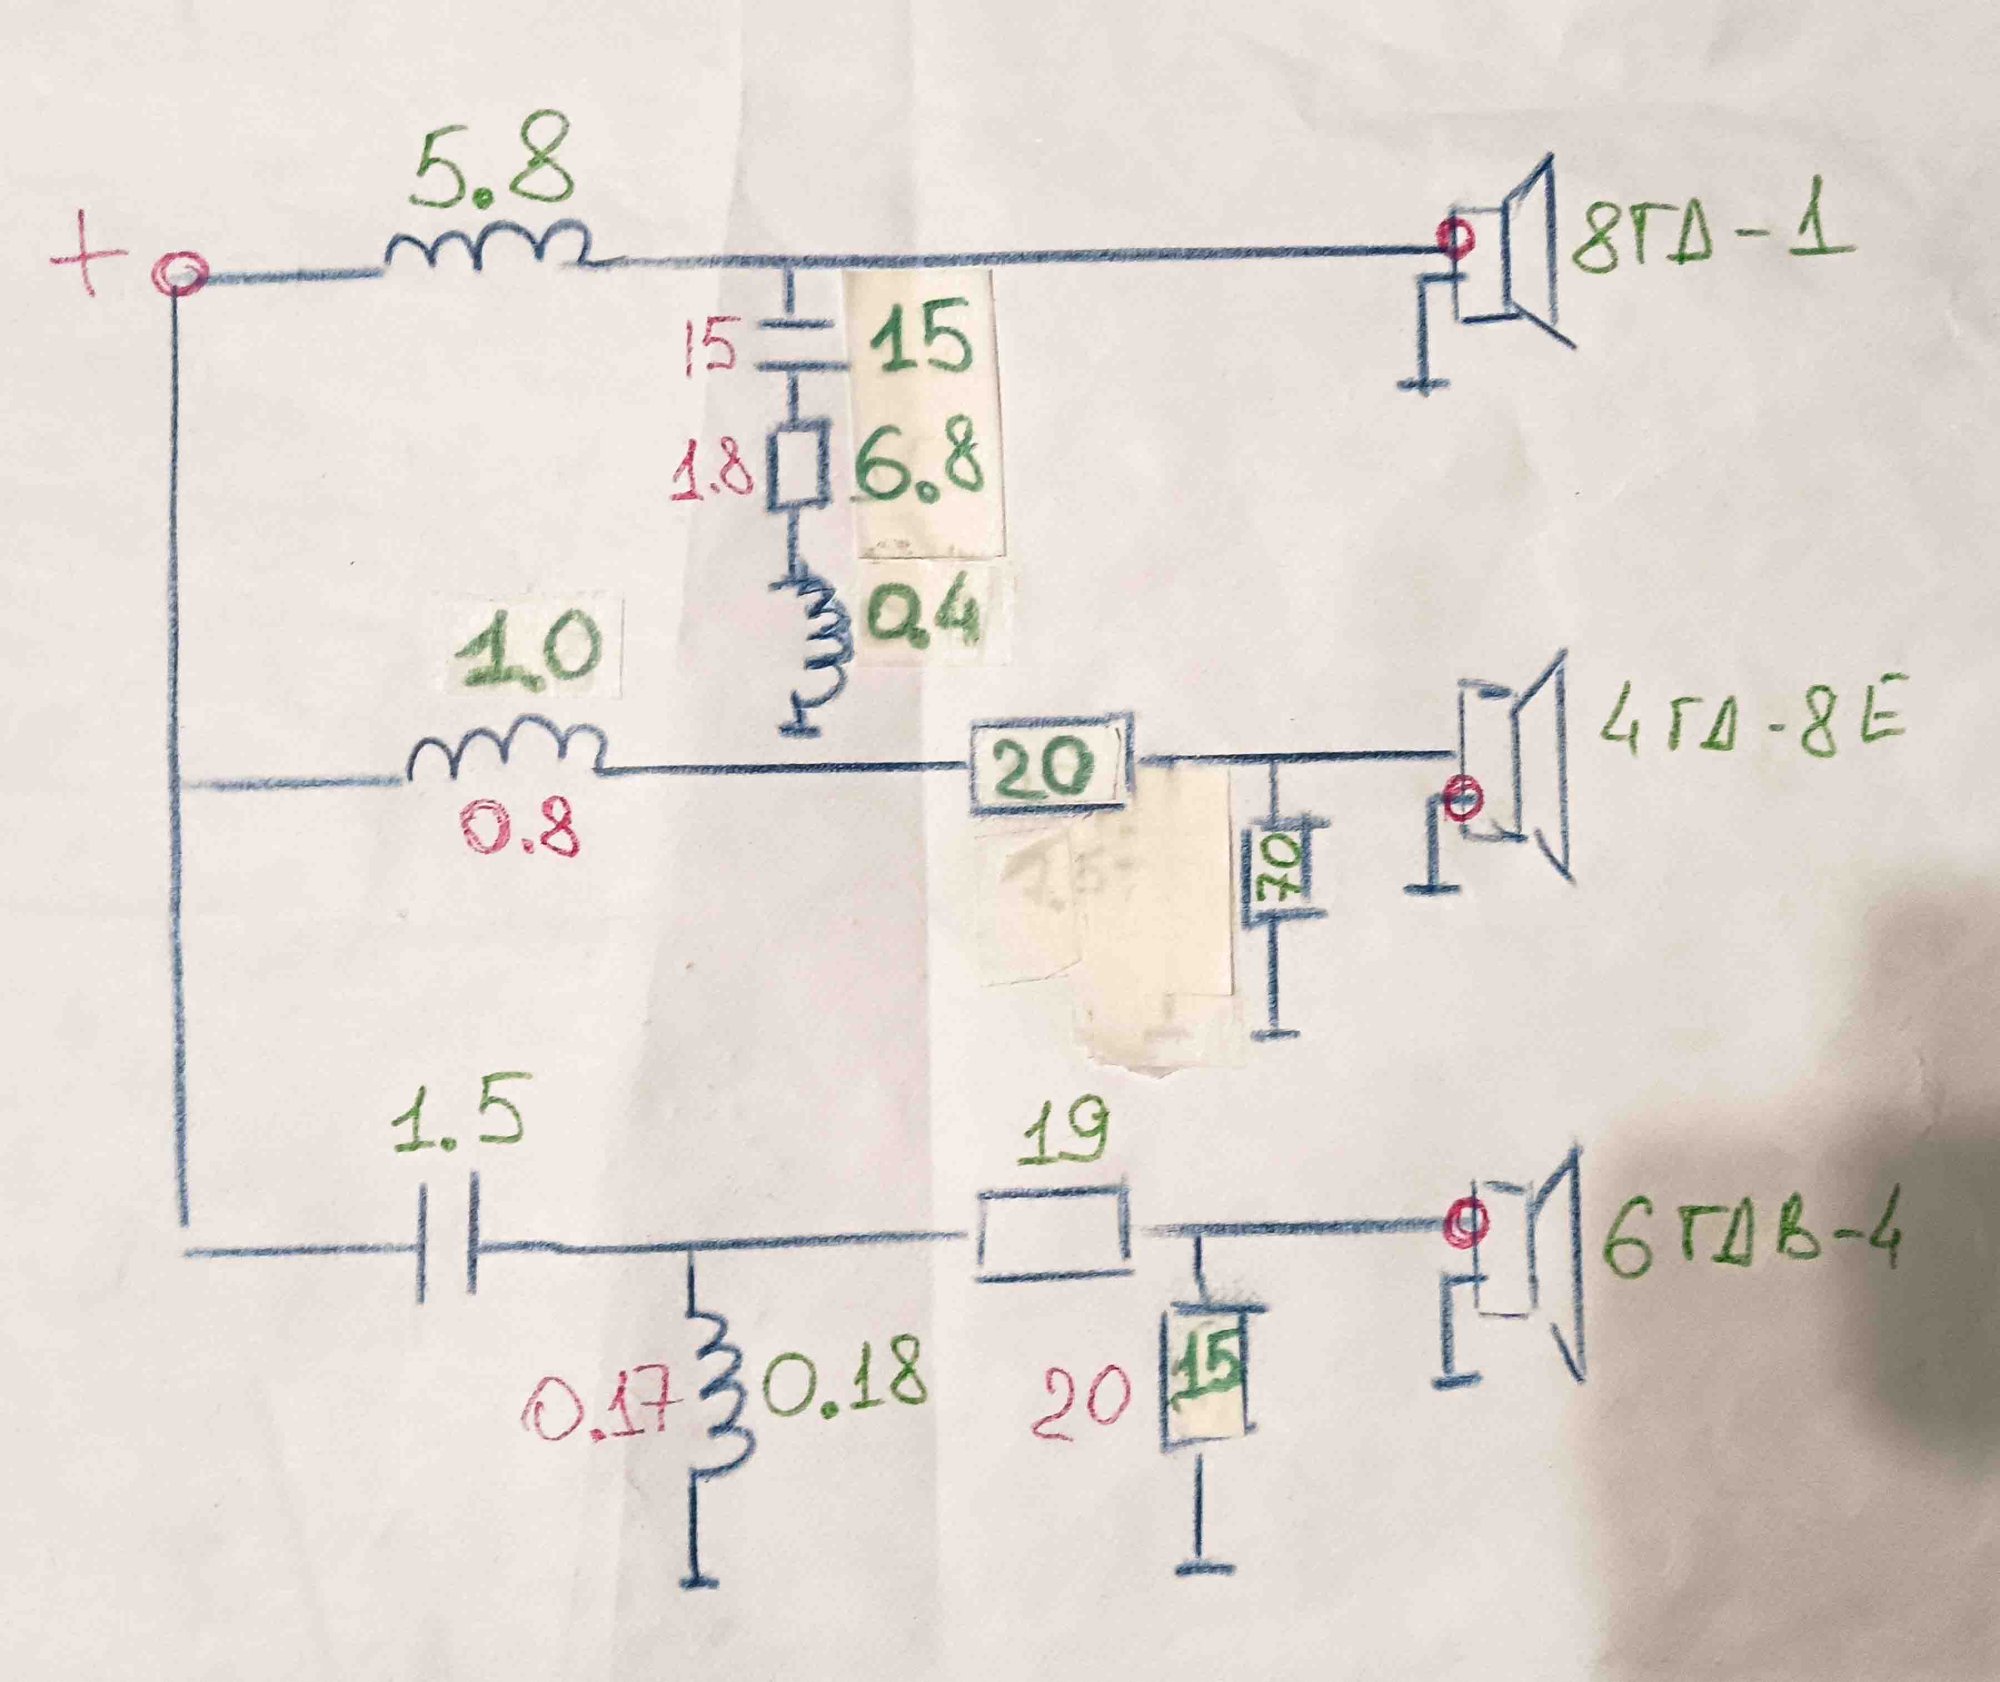 5.8
+
8ГД-1
15 15
1.8 6.8
0.4
1.0
0.8
20
4ГД-8Е
70
1.5
19
6ГДВ-4
0.17 0.18
20 15